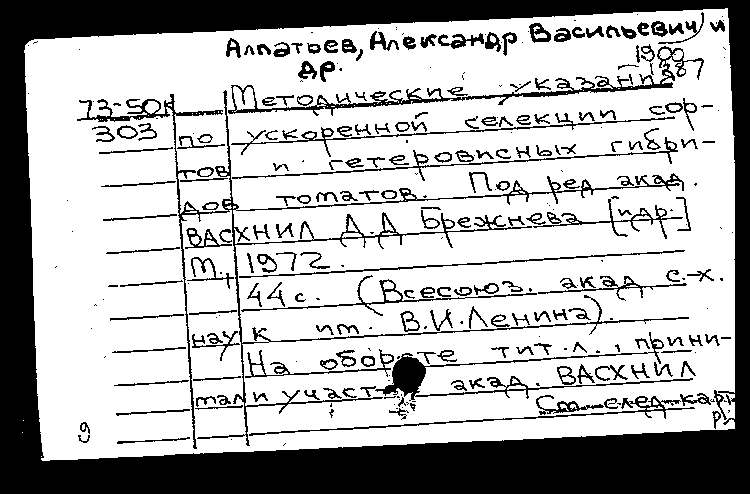 Алпатьев, Александр Васильевич и
др.
1900
73-50к Методические указания 387
303 по ускоренной селекции сор-
тов и гетерозисных гибри-
дов томатов. Под ред акад.
ВАСХНИЛ Д.Д Брежнева [и др.]
М., 1972.
44 с. (Всесоюз. акад. с.-х.
наук им. В.И.Ленина).
На обороте тит. л., прини-
мали участ- акад. ВАСХНИЛ
См след карт
9